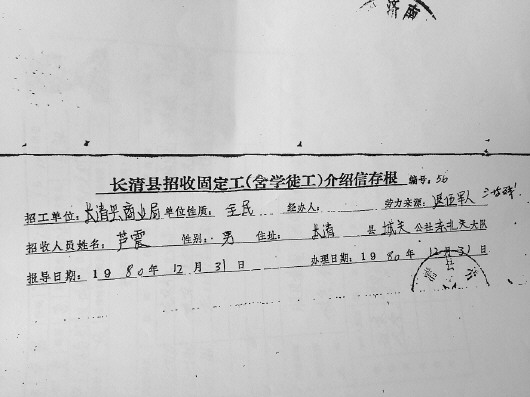 济南
长清县招收固定工(含学徒工)介绍信存根 编号:56
招工单位:长清县商业局 单位性质:全民 经办人: 劳力来源:退伍军人
招收人员姓名:芦震 性别:男 住址:长清县城关公社东北关大队
报导日期:1980年12月31日 办理日期:1980年12月31日